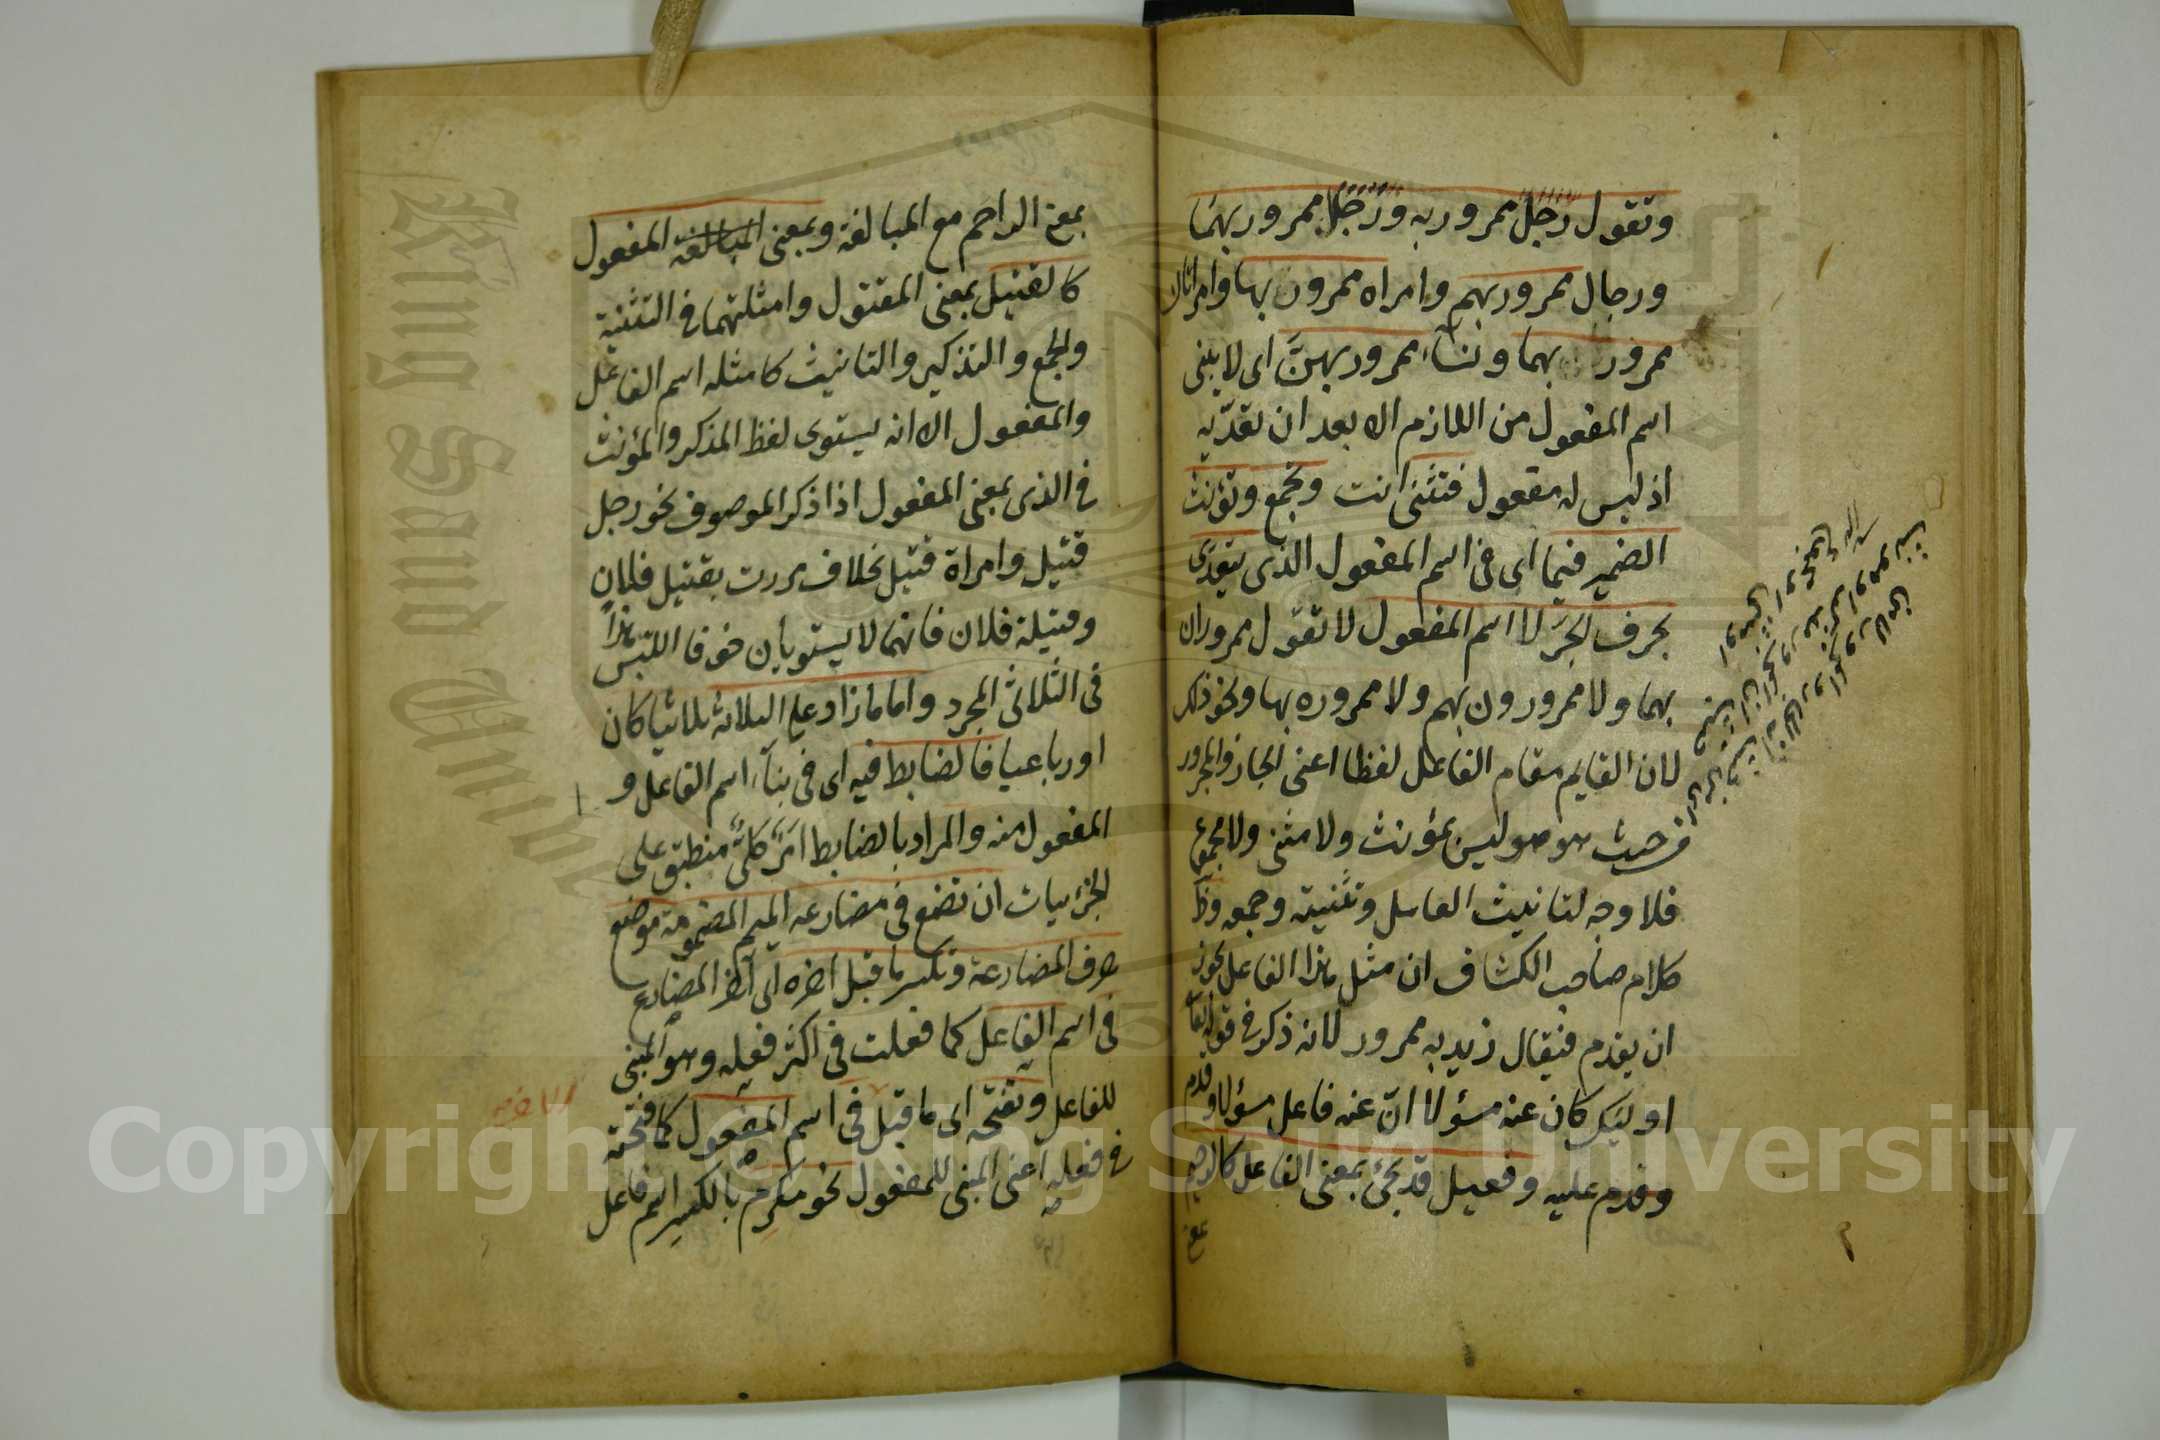 وتقول رجل ممرور به ورجلان ممرور بهما
ورجال ممرور بهم وامراه ممرون بها وامراتان
ممرور بهما ونساء ممرور بهنّ اى لا يبنى
اسم المفعول من اللازم الا بعد ان تعدّيه
اذ ليس له مفعول فتثنى انت وتجمع وتؤنث
الضمير فيما اى فى اسم المفعول الذى يتعدى
بحرف الجرّ لا اسم المفعول لا تقول ممروران
بهما ولا ممرورون بهم ولا ممروره بها ونحو ذلك
لان القايم مقام الفاعل لفظا اعنى الجار والمجرور
من حيث هو هو ليس بمؤنث ولا مثنى ولا مجموع
فلا وجه لتانيث العامل وتثنيته وجمعه وظ
كلام صاحب الكشاف ان مثل هذا الفاعل يجوز
ان يقدم فيقال زيد به ممرور لانه ذكر فى قوله تعا
اوليك كان عنه مسؤلا انّ عنه فاعل مسؤلا وقدم
وقدم عليه وفعيل قد يجئ بمعنى الفاعل كالرحيم
بمعنى
بمعنى الراحم مع المبالغة وبمعنى المبالغة المفعول
كالقتيل بمعنى المقتول وامثلتهما فى التثنية
والجمع والتذكير والتانيث كامثله اسم الفاعل
والمفعول الا انه يستوى لفظ المذكر والمؤنث
فى الذى بمعنى المفعول اذا ذكر الموصوف نحو رجل
قتيل وامراة قتيل بخلاف مررت بقتيل فلان
وقتيلة فلان فانهما لا يستويان خوفا اللبس هذا
فى الثلاثى المجرد واما ما زاد على الثلاثة ثلاثيا كان
او رباعيا فالضابط فيه اى فى بناء اسم الفاعل و
المفعول منه والمراد بالضابط امر كلىّ منطبق على
الجزئيات ان تضع فى مضارعه الميم المضمومة موضع
حرف المضارعة وتكسر ما قبل اخره اى اخر المضارع
فى اسم الفاعل كما فعلت فى اكثر فعله وهو المبنى
للفاعل وتفتحه اى ما قبل فى اسم المفعول كما فتحته
فى فعله اعنى المبنى للمفعول نحو مكرم بالكسر اسم فاعل
الاخر
King Saud University
Copyright © King Saud University